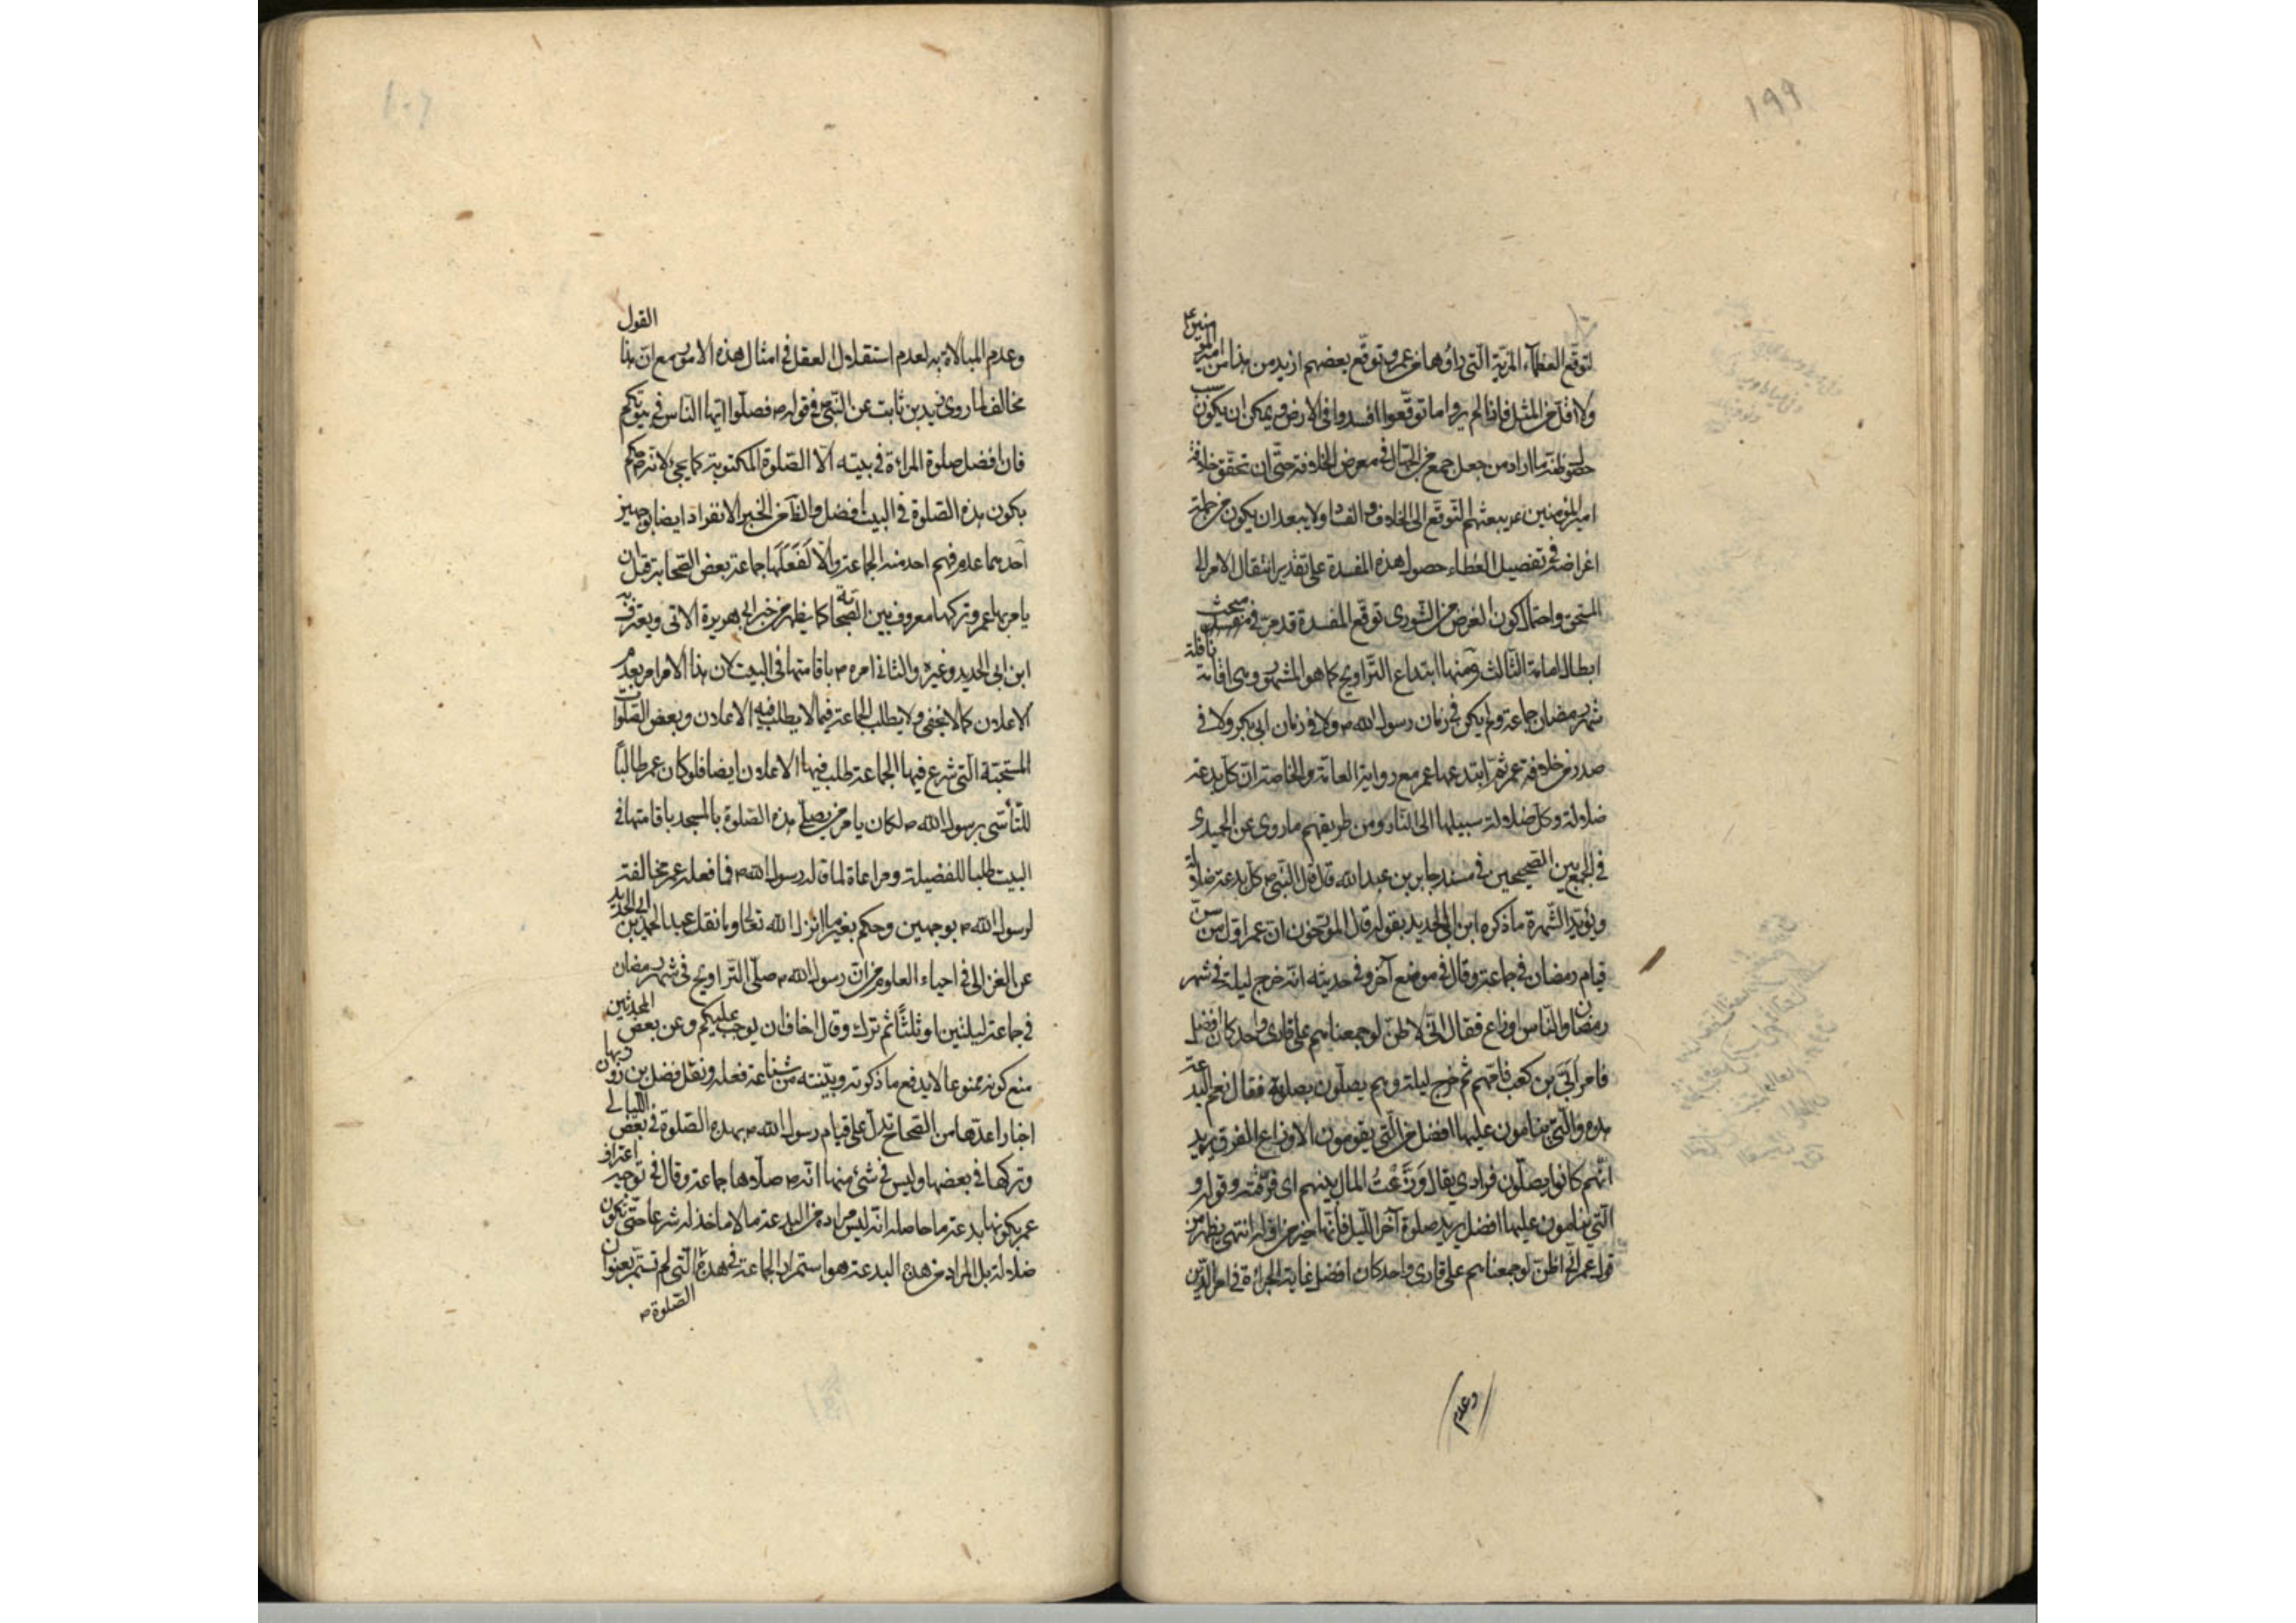 ١٩٩
لتوقّع العظماء المزيّة الّتي رأوها من عمر وتوقّع بعضهم ازيد من هذا من امير المؤمنين ع
ولا اقلّ من المثل فاذا لم يروا ما توقّعوا افسدوا في الارض ويمكن ان يكون سبب
حصول ما اراد من جعل جمع من الجهّال في معرض الخلافة حتّى ان تحقّق خلافة
امير المؤمنين ع يبعثهم التوقّع الى الخلاف والفساد ولا يبعد ان يكون من جملة
اغراضه في تفضيل العطاء حصول هذه المفسدة على تقدير انتقال الامر الى
المستحق واحتمال كون الغرض من الشّورى توقّع المفسدة قد مرّ في مبحث
ابطال امامة الثّالث ومنها ابتداع التّراويح كما هو المشهور وهي اقامة نافلة
شهر رمضان جماعة ولم يكن في زمان رسول الله ص ولا في زمان ابي بكر ولا في
صدر من خلافة عمر ثمّ ابتدعها عمر مع رواية العامّة والخاصّة انّ كلّ بدعة
ضلالة وكلّ ضلالة سبيلها الى النّار ومن طريقهم ما روى عن الحميدي
في الجمع بين الصّحيحين في مسند جابر بن عبد الله قال قال النّبي ص كل بدعة ضلالة
ويؤيّد الشّهرة ما ذكره ابن ابي الحديد بقوله قال المورّخون انّ عمر اوّل من سنّ
قيام رمضان في جماعة وقال في موضع آخر وفي حديثه انّه خرج ليلة في شهر
رمضان والنّاس اوزاع فقال انّي لاظنّ لو جمعناهم على قاري واحد كان افضل
فامر ابيّ بن كعب فامّهم ثم خرج ليلة وهم يصلّون بصلوته فقال نعم البدعة
هذه والّتي ينامون عليها افضل من الّتي يقومون الاوزاع الفرق يريد
انّهم كانوا يصلّون فرادى يقال وَزَّعْتُ المال بينهم اى فرّقته وقوله و
الّتي ينامون عليها افضل يريد صلوة آخر اللّيل فانّها خير من اوّله انتهى يظهر من
قول عمر انّي اظنّ لو جمعناهم على قاري واحد كان افضل غاية الجرأة في امر الدّين
وعدم
وعدم المبالاة به لعدم استقلال العقل في امثال هذه الامور مع انّ هذا القول
مخالف لما روى زيد بن ثابت عن النّبيّ ص في قوله ص فصلّوا ايّها النّاس في بيوتكم
فان افضل صلوة المراة في بيته الّا الصّلوة المكتوبة كما يجئ لانّه ص حكم
بكون هذه الصّلوة في البيت افضل والظّاهر من الخبر الانفراد ايضا بوجهين
احدهما عدم فهم احد منه الجماعة والّا لَفَعَلَها جماعة بعض الصّحابة قبل ان
يامر بها عمر وتركها معروف بين الصّحابة كما يظهر من خبر ابي هريرة الآتي ويعترف به
ابن ابي الحديد وغيره والثاني امره ص باقامتها في البيت لان هذا الامر امر بعدم
الاعلان كما لا يخفى ولا يطلب الجماعة فيما لا يطلب فيه الاعلان وبعض الصّلوات
المستحبّة الّتي شرع فيها الجماعة طلب فيها الاعلان ايضا فلو كان عمر طالبًا
للتّأسّي برسول الله ص لكان يامر من يصلّي هذه الصّلوة بالمسجد باقامتها في
البيت طلبا للفضيلة ومراعاة لما قاله رسول الله ص فما فعله عمر مخالفة
لرسول الله ص بوجهين وحكم بغير ما انزل الله تعالى وما نقل عبد الحميد بن ابي الحديد
عن الغزالي في احياء العلوم من انّ رسول الله ص صلّى التّراويح في شهر رمضان
في جماعة ليلتين او ثلثًا ثم ترك وقال اخاف ان يوجب عليكم وعن بعض المحدثين
منع كونه ممنوعا لا يدفع ما ذكرته وبيّنته من شناعة فعله ونقل فضل بن روزبهان
اخبارا عدّها من الصّحاح تدلّ على قيام رسول الله ص بهذه الصّلوة في بعض اللّيالي
وتركها في بعضها وليس في شئ منها انّه ص صلّاها جماعة وقال في توجيه اعتراف
عمر بكونها بدعة ما حاصله انّه ليس مراده من البدعة ما لا ماخذ له شرعا حتّى تكون
ضلالة بل المراد من هذه البدعة هو استمرار الجماعة في هذه الصّلوة الّتي لم تستمرّ بعنوان